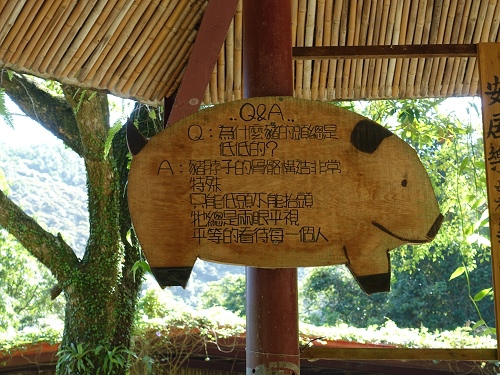 Q&A
Q：為什麼豬的頭總是
低低的？
A：豬脖子的骨骼構造非常
特殊
只能低頭不能抬頭
牠總是兩眼平視
平等的看待每一個人